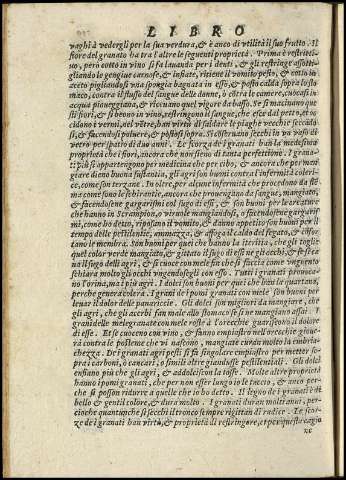 LIBRO
vaghi à vedergli per la sua verdura, & è anco di vtilità il suo frutto. Il
fiore del granato ha tra l'altre le seguenti proprietà. Prima è restretti-
uo, però cotto in vino si fa lauanda per i denti, & gli restringe assotti-
gliando le gengiue carnose, & infiate, ritiene il vomito pesto, & cotto in
aceto pigliandosi vna spongia bagnata in esso, & posta calda sopra lo sto
maco, contra il flusso del sangue delle donne, ò oltra le camere, cuocasi in
acqua piouegiana, & riceuano quel vigore da basso. Se si macinano que
sti fiori, & si beono in vino, restringono il sangue, che esce dal petto, et oc
cidono i vermi, nel ventre, han virtù di saldare le piaghe vecchie seccado
si, & facendosi poluere, & postoui sopra. Si conseruano secchi in va vaso di
vetro per ispatio di due anni. Le scorze di granati han la medesima
proprietà che i fiori, ancora che non sieno di tanta perfettione. I granati
più si appartengono per medicina che per cibo, & ancora che per man-
giare dieno buona sustantia, gli agri son buoni contra l'infermità colerice,
come son terzane. In oltre, per alcune infermità che procedono da ste
ma come sono le hebrantie, ancora che procurano da sangue, mangiato,
& facendosene gargarismi col sugo di essi, & son buoni per le creature
che hanno in Scrampion, ò viruole mangiandosi, ò facendosene gargaris-
mi, come ho detto, riposano il vomito, & danno appetito son buoni per il
tempo delle pestilentie, ammazza, & affoga al caldo del fegato, & confor
tano le membra. Son buoni per quei che hanno la iteritia, che gli toglie
quel color verde mangiato, & gittato il sugo di essi ne gli occhi, & se si pi
na il sugo delli agri, & si cuoce con mele fin che si faccia come vnguento
schiara molto gli occhi vngendosegli con esso. Tutti i granati prouoca-
no l'orina, ma i più agri. I dolci son buoni per quei che han le quartana,
perche genera colera. I grani de i pomi granati con mele son buoni per
leuar il dolor delle panariccie. Gli dolci son migliori da mangiare, che
gli agri, che gli acerbi fan male allo stomaco se si ne mangiano assai. I
grani delle melegranate con mele rose à l'orecchie guariscono il dolore
di esse. Et se cuocono con vino, & fanno empiastro nell'orecchie gioue-
rà contra le posteme che vi nascono, mangiate curan molto la embria-
chezza. De i granati agri pesti si fà singular empiastro per metter so-
pra i carboni, ò cancari, ò simili altre giandusse pestilentiali. Gli dolci
enfiano più che gli agri, & addolciscon la tosse. Molte altre proprietà
hanno i pomi granati, che per non esser lungo io le taccio, & anco per-
che si posson ridurre a quelle che io ho detto. Il legno de i granati è di
bello & gentil colore, & dura molto. I granati duran molti anni, per-
cioche quantunque si secchi il tronco sempre rigittan di radice. Le scor-
ze de i granati han virtù, & proprietà di restringere, et per questa cagio
ne